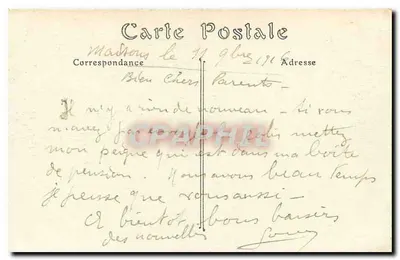 Carte Postale
le 11 9bre 1916
Correspondance Adresse
Bien Chers Parents -
Il n'y a rien de nouveau - si vous
n'avez pas mettez
mon peigne qui est dans ma boîte
de pension. Nous avons beau temps
je pense que vous aussi -
A bientôt bons baisers
des nouvelles